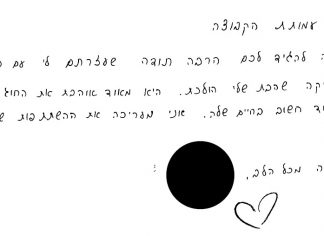 עמותת הקבוצה
להגיד לכם הרבה תודה שעזרתם לי עם
שהבת שלי הולכת. היא מאוד אוהבת את החוג
חשוב בחיים שלה. אני מעריכה את ההשתתפות
מכל הלב.